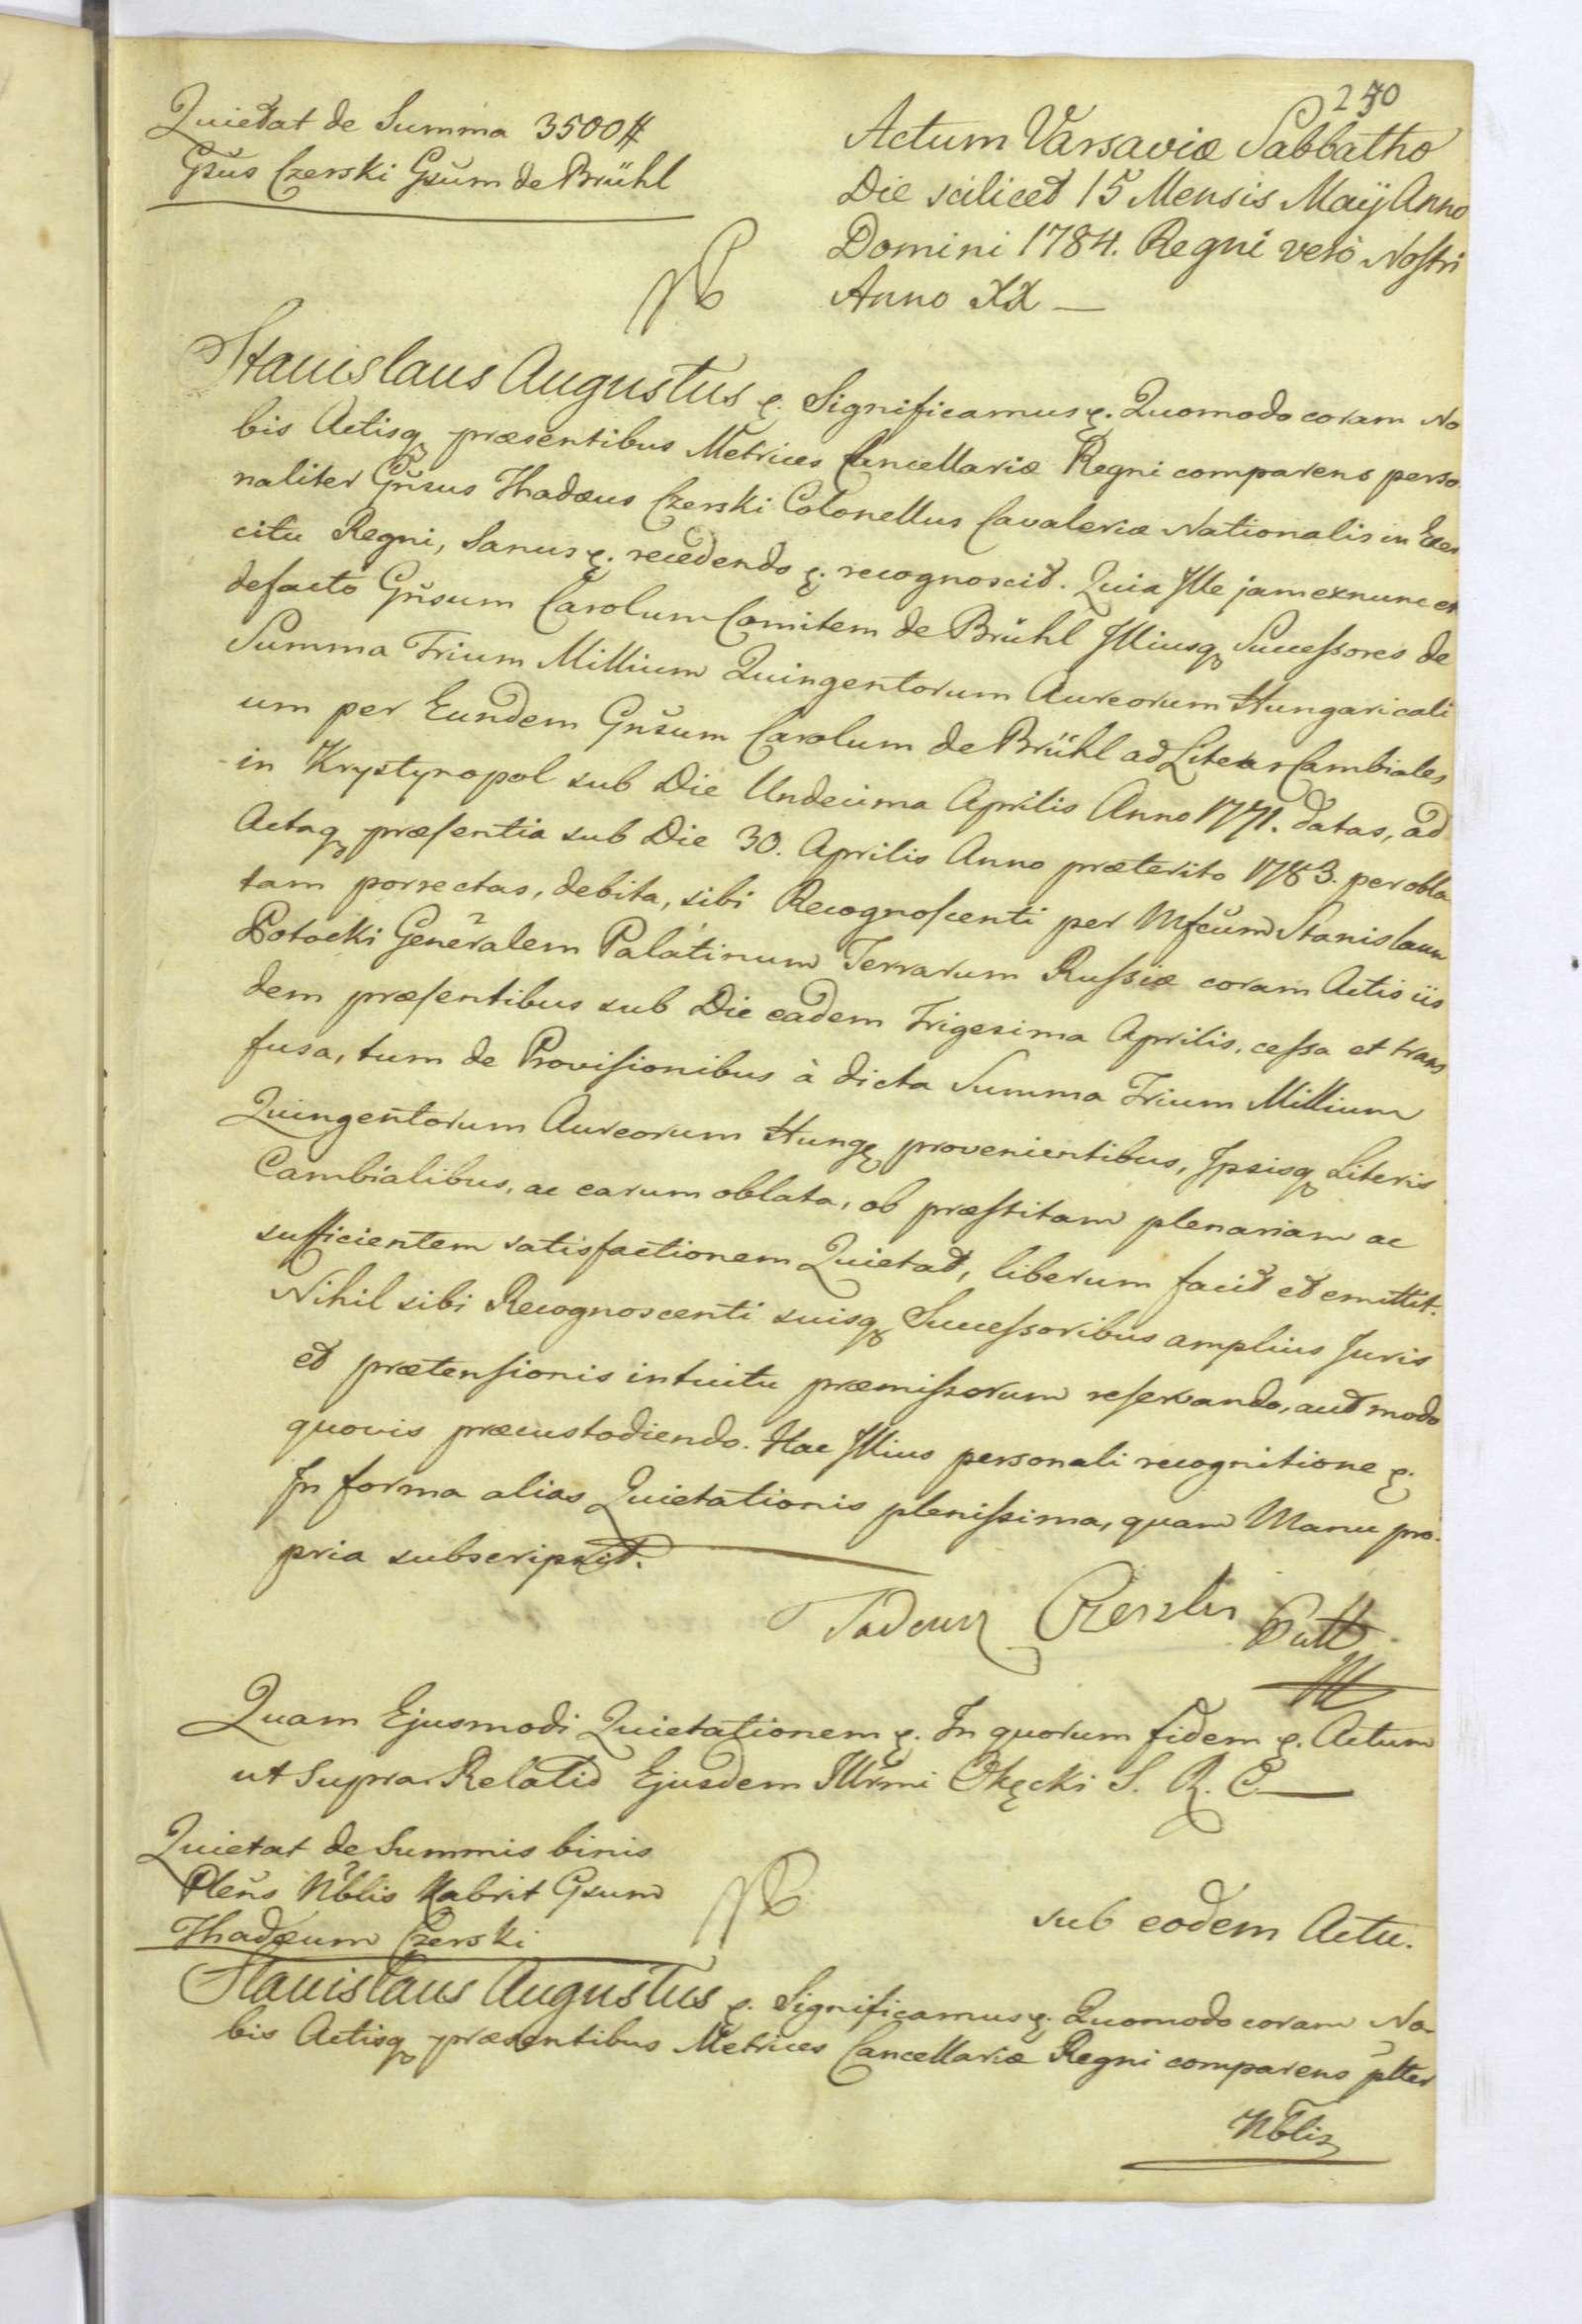 270
Quietat de Summa 3500 #
Gsus Czerski Gsum de Brühl
Actum Varsaviæ Sabbatho
Die scilicet 15 Mensis Maij Anno
Domini 1784. Regni verò Nostri
Anno XX —
Stanislaus Augustus ę. Significamus ę. Quomodo coram No
bis Actisq præsentibus Metrices Cancellariæ Regni comparens perso
naliter Gnsus Thadæus Czerski Colonellus Cavaleriæ Nationalis in Exer
citu Regni, Sanus ę. recedendo ę. recognoscit. Quia Ille jam exnunc et
defacto Gnsum Carolum Comitem de Brühl Illiusq Successores de
Summa Trium Millium Quingentorum Aureorum Hungaricali
um per Eundem Gnsum Carolum de Brühl ad Literas Cambiales
in Krystynopol sub Die Undecima Aprilis Anno 1771. datas, ad
Actaq præsentia sub Die 30. Aprilis Anno præterito 1783. per obla
tam porrectas, debita, sibi Recognoscenti per Mfcum Stanislaum
Potocki Generalem Palatinum Terrarum Russiæ coram Actis iis
dem præsentibus sub Die eadem Trigesima Aprilis, cessa et trans
fusa, tum de Provisionibus à dicta Summa Trium Millium
Quingentorum Aureorum Hungę provenientibus, Ipsisq Literis
Cambialibus, ac earum oblata, ob præstitam plenariam ac
sufficientem satisfactionem Quietat, liberum facit et emittit.
Nihil sibi Recognoscenti suisq Successoribus amplius Juris
et prætensionis intuitu præmissorum reservando, aut modo
quovis præcustodiendo. Hac Illius personali recognitione ę.
In forma alias Quietationis plenissima, quam Manu pro-
pria subscripsit.
Tadeusz Czerski
Quam Ejusmodi Quietationem ę. In quorum fidem ę. Actum
ut Supra. Relatio Ejusdem Illrmi Okęcki S. R. C —
Quietat de Summis binis
Plens Nblis Kabrit Gsum
Thadæum Czerski
sub eodem Actu.
Stanislaus Augustus ę. Significamus ę. Quomodo coram No-
bis Actisq præsentibus Metrices Cancellariæ Regni comparens plter
Nblis